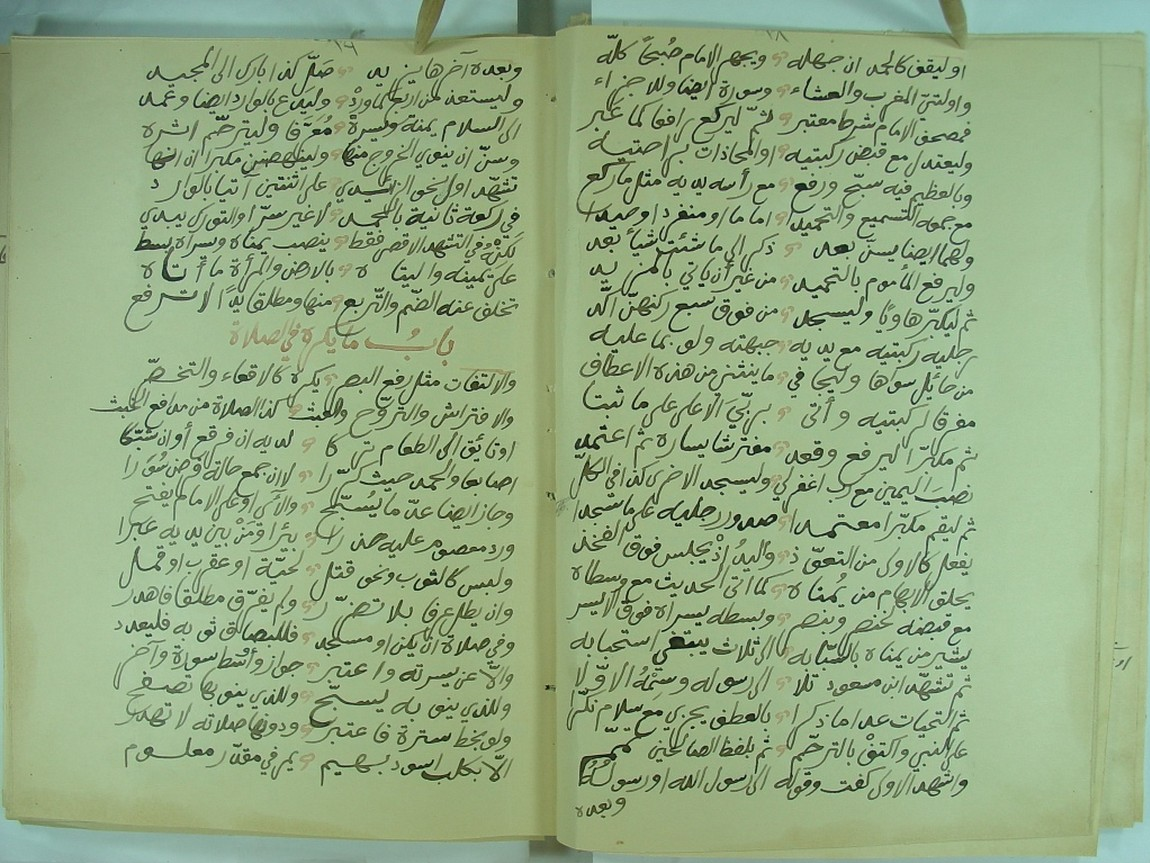 او ليقف كالحمد ان جهله ويجهر الامام صبحا كله
واولتي المغرب والعشاء وسورة ايضا ولاجزاء
فصححن الامام شرط معتبر ثم ليركع رافعا كما غبر
وليعتدل مع قبض ركبتيه او المحاذات براحتيه
وبالعظيم فيه سبح ورفع مع رأسه يديه مثل ما ركع
مع جمعه التسميع والتحميدا اماما او منفردا وحيدا
ولهما ايضا يسن بعد ذكر الى ما شئت شيأ بعد
وليرفع المأموم بالتحميد من غير أن ياتي بالمزيد
ثم ليكبر هاويا وليسجد من فوق سبع ركنهن اكد
رجليه ركبتيه مع يديه جبهته ولو بما عليه
من حائل سوها وليجا في ما ينثني من هذه الاعطاف
مفرقا ركبتيه وأتى بربي الاعلى على ما ثبتا
ثم مكبرا ليرفع وقعد مفترشا يساره ثم اعتمد
نصب اليمين مع رب اغفر لي وليسجد الاخرى كذا في الكل
ثم ليقم مكبرا معتمدا صدور رجليه على ما سجدا
يفعل كالاولى من التعوذ واليد إذ يجلس فوق الفخذ
يحلق الابهام من يمناه كما اتى الحديث مع وسطاه
مع قبضه لخنصر وبنصر وبسطه يسراه فوق الايسر
يشير من يمناه بالسبابه الى ثلاث يبتغي استحبابه
ثم تشهد ابن مسعود تلا الى رسوله وسمه الاولا
ثم التحيات عدا ما ذكرا بالعطف يجزي مع سلام نكرا
على النبي واكتف بالترحم ثم بلفظ الصالحين تمم
واشهد الاولى كفت وقوله الى رسول الله او رسوله
وبعده
وبعده آخرها يزيد صل كذا بارك الى المجيد
وليستعذ من اربع كما ورد وليدع بالوارد ايضا وعمد
الى السلام يمنة ويسره معرفا وليترحم اثره
وسن ان ينوي الخروج منها ولينهضن مكبرا ان انها
تشهد اول نحو الزائد على اثنتين آتيا بالوارد
في ركعة ثانية بالحمد لا غير سرا والتورك يبدي
لكنه في التشهد الاخر فقط ينصب يمناه ويسراه بسط
على يمينه واليتاه بالارض والمرأة ما أتاه
تخلف عنه الضم والتربع منها ومطلقا يدا لا ترفع
باب ما يكره في الصلاة
والالتفات مثل رفع البصر يكره كالاقعاء والتخصر
والافتراش والتروح والعبث كذا الصلاة من مدافع الخبث
او تائق الى الطعام تركا لديه ان فرقع أو ان شبكا
اصابعا والحمد حيث كررا لا ان جمع حالة فرض سورا
وجاز ايضا عد ما يسبح والآي او على الامام يفتح
ورد معصوم عليه حذرا بئرا ومن بين يديه عبرا
ولبس كالثوب ونحو قتل لحية او عقرب او قمل
وان يطل عرفا بلا تضرر ولم يفرق مطلقا فاهدر
وفي صلاة ان يكن او مسجد فللبصاق ثوبه فليعدد
والا عن يسرته واعتبر جواز وأسط سورة وآخر
وللذي ينوبه ليسبح وللذي ينوبها تصفح
ولو بخط سترة فاعتبر ودونها صلاته لا تهدر
الا بكلب اسود بهيم يمر في مقدر معلوم